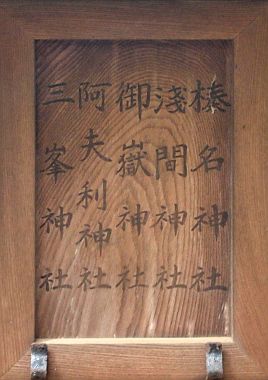 榛名神社
淺間神社
御嶽神社
阿夫利神社
三峯神社